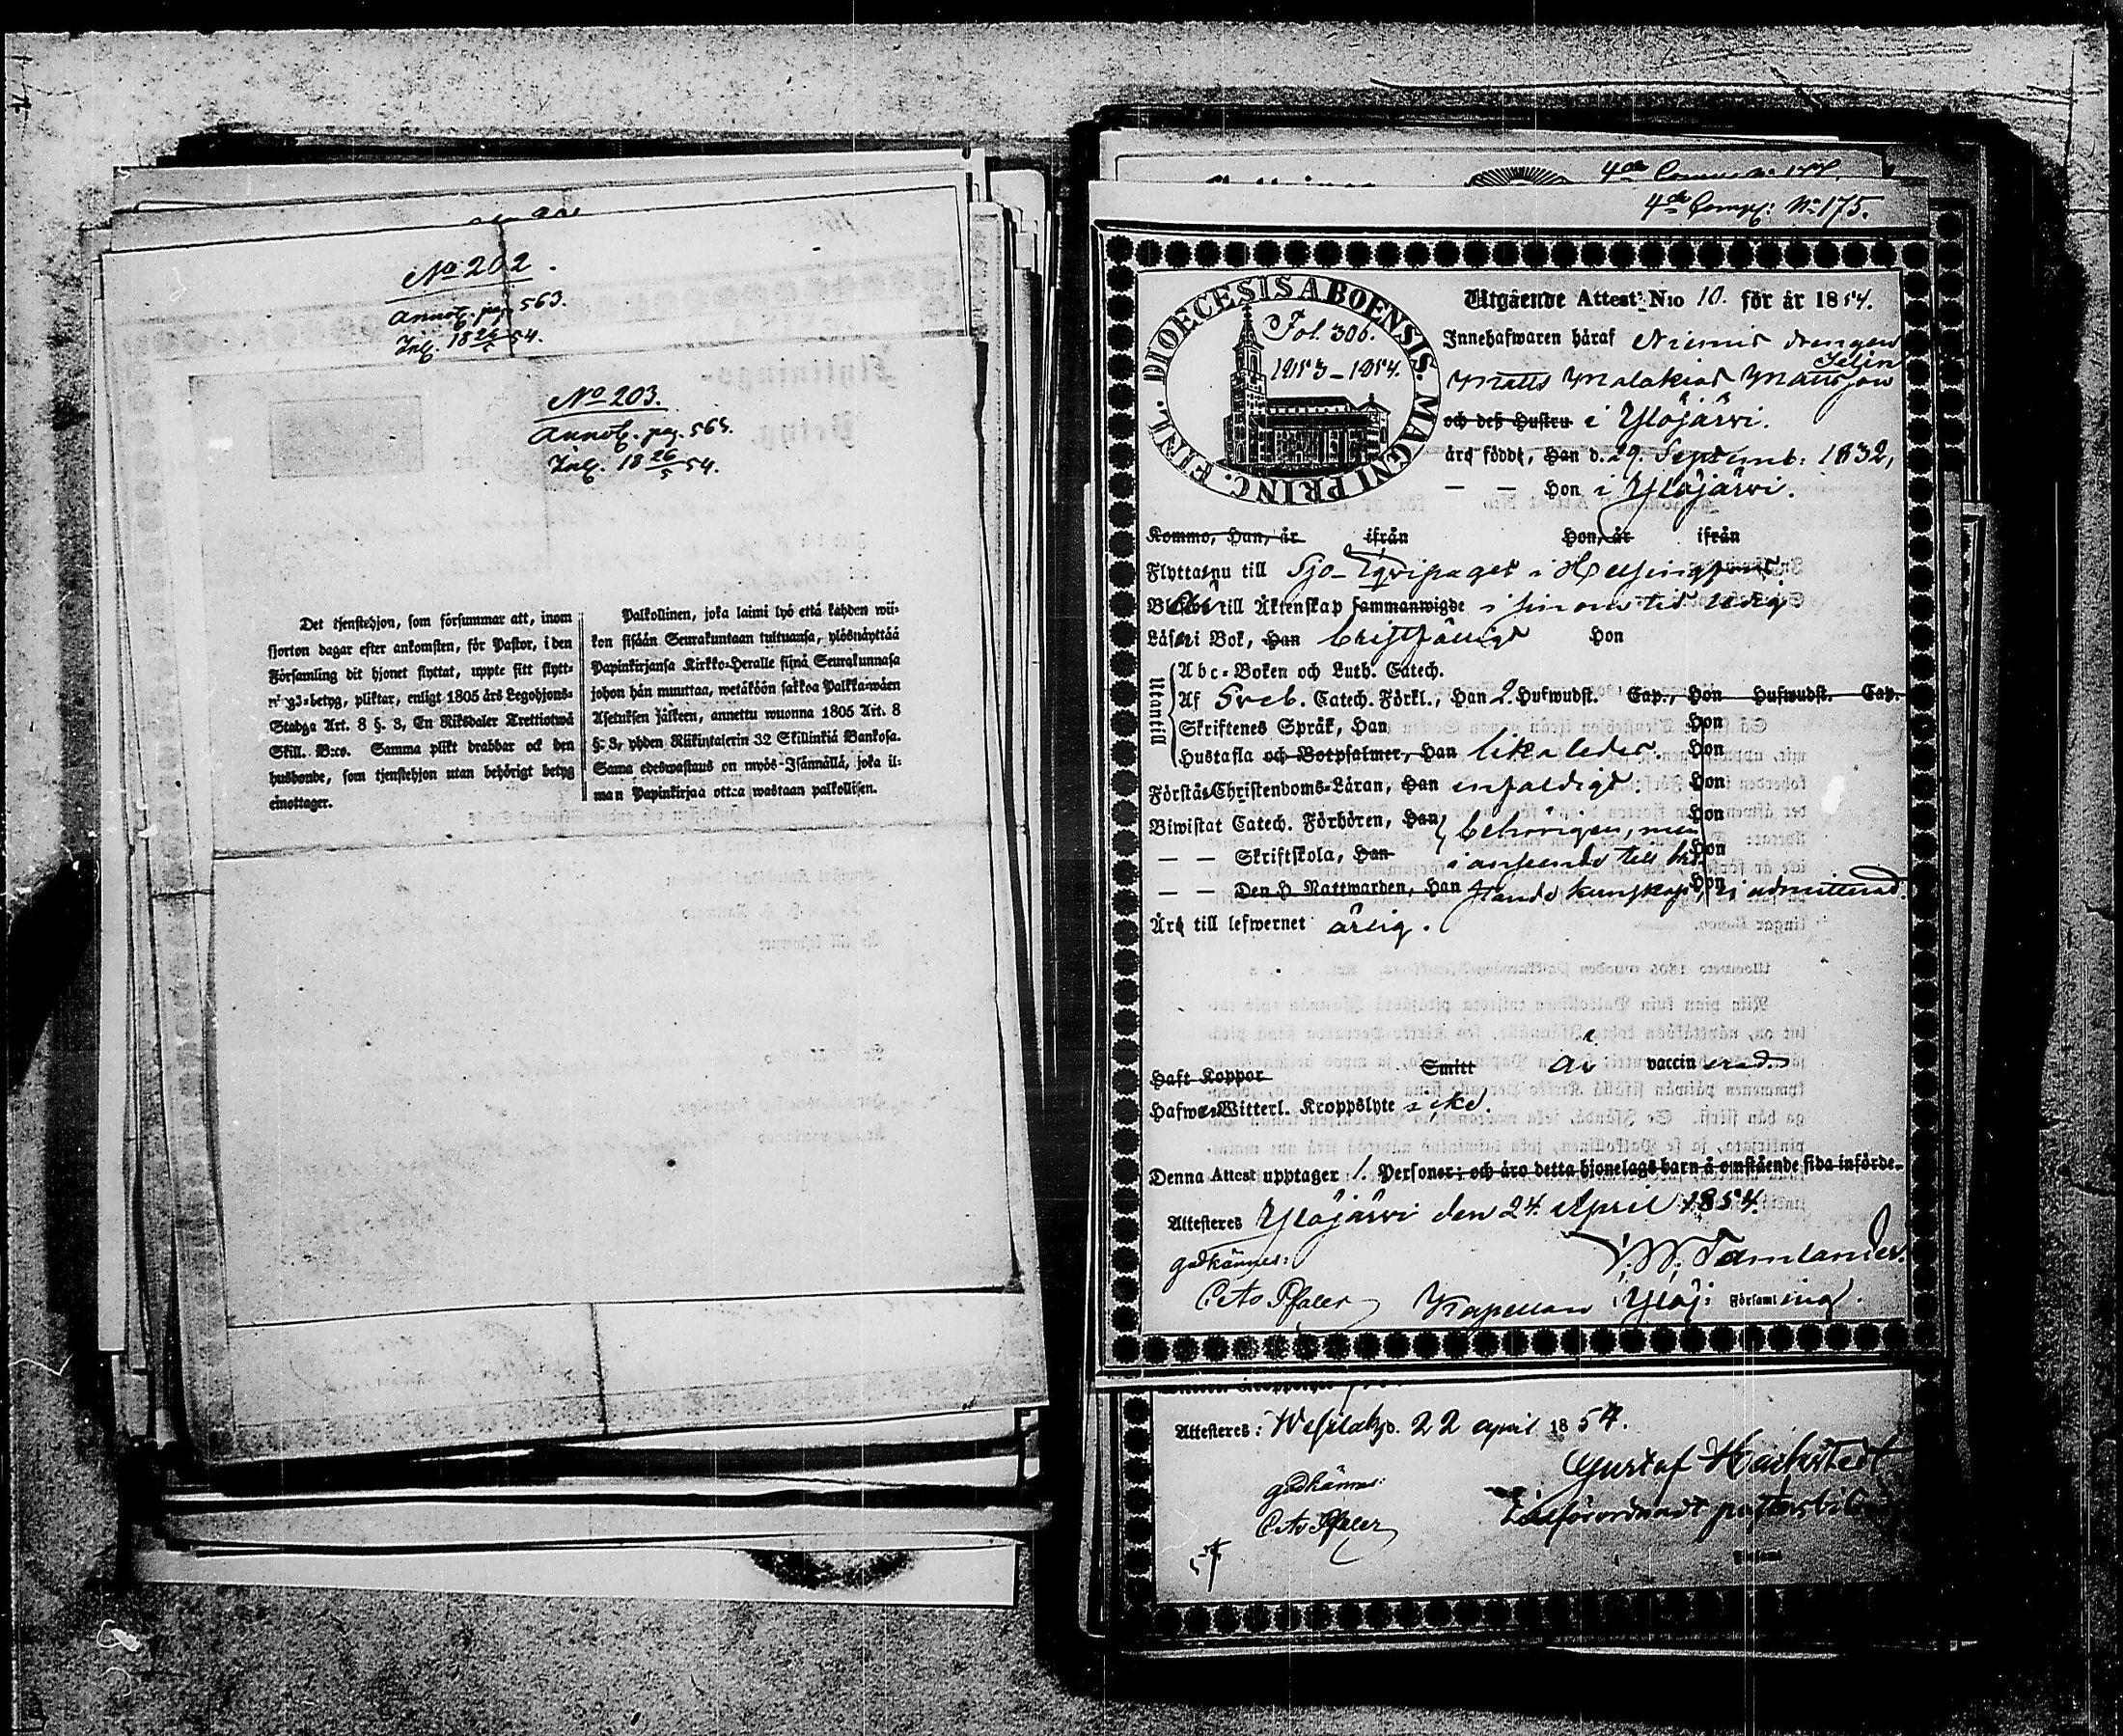 No 202.
Annot. pag. 563.
Inl. 18 26/5 54.
No 203.
Annot. pag. 565.
Inl. 18 26/5 54.
Det tjenstehjon, som försummar att, inom
fjorton dagar efter ankomsten, för Pastor, i den
Församling dit hjonet flyttat, uppte sitt flytt-
nings-betyg, pliktar, enligt 1805 års Legohjons-
Stadga Art. 8 §. 3, En Riksdaler Trettiotwå
Skill. B:co. Samma plikt drabbar ock den
husbonde, som tjenstehjon utan behörigt betyg
emottager.
Palkollinen, joka laimi lyö että kahden wii-
kon sisään Seurakuntaan tultuansa, ylösnäyttää
Papinkirjansa Kirkko-Herralle siinä Seurakunnasa
johon hän muuttaa, wetäköön sakkoa Palkka-wäen
Asetuksen jälkeen, annettu wuonna 1805 Art. 8
§: 3, yhden Riikintalerin 32 Skillinkiä Bankosa.
Sama edeswastaus on myös Isännällä, joka il-
man Papinkirjaa ottaa wastaan palkollisen.
4de Comp: No 175.
DIOECESIS ABOENSIS. MAGNI PRINC. FINL.
Fol. 306.
1853–1854.
Utgående Attest No 10. för år 1854.
Innehafwaren häraf Niemis drengen
Selin
Matts Malakias Mattsson
och deß Hustru i Ylöjärvi.
äro födde, Han d. 29. Septemb: 1832,
— — Hon i Ylöjärvi.
Kommo, Han, år ifrån Hon, år ifrån
Flytta nu till Sjö-Eqvipaget i Helsingfors
till Äktenskap sammanwigde i sin om tid ledig
Läser i Bok, Han Hon
Utantill
Abc-Boken och Luth. Catech.
Af Sveb. Catech. Förkl., Han 2 Hufwudst. Cap., Hon Hufwudst. Cap.
Skriftenes Språk, Han Hon
Hustafla och Botpsalmer, Han likaledes. Hon
Förstå Christendoms-Läran, Han enfaldigt. Hon
Biwistat Catech. Förhören, Han behörigen, men Hon
— — Skriftskola, Han i anseende till bri- Hon
— — Den H. Nattwarden, Han stande kunskap, Hon ej admitterad.
Äro till lefwernet ärlig.
Haft Koppor Smitt Är vaccinerad.
Hafwa Witterl. Kroppslyte icke.
Denna Attest upptager 1. Personer; och äro detta hjonelags barn å omstående sida införde.
Attesteres Ylöjärvi den 24. April 1854.
godkännes: V. W. Tamlander.
C. A. Pfaler Kapellan i Ylöj: Församl ing.
Attesteres: d. 22 april 1854.
godkännes: Gustaf
C. A. Pfaler